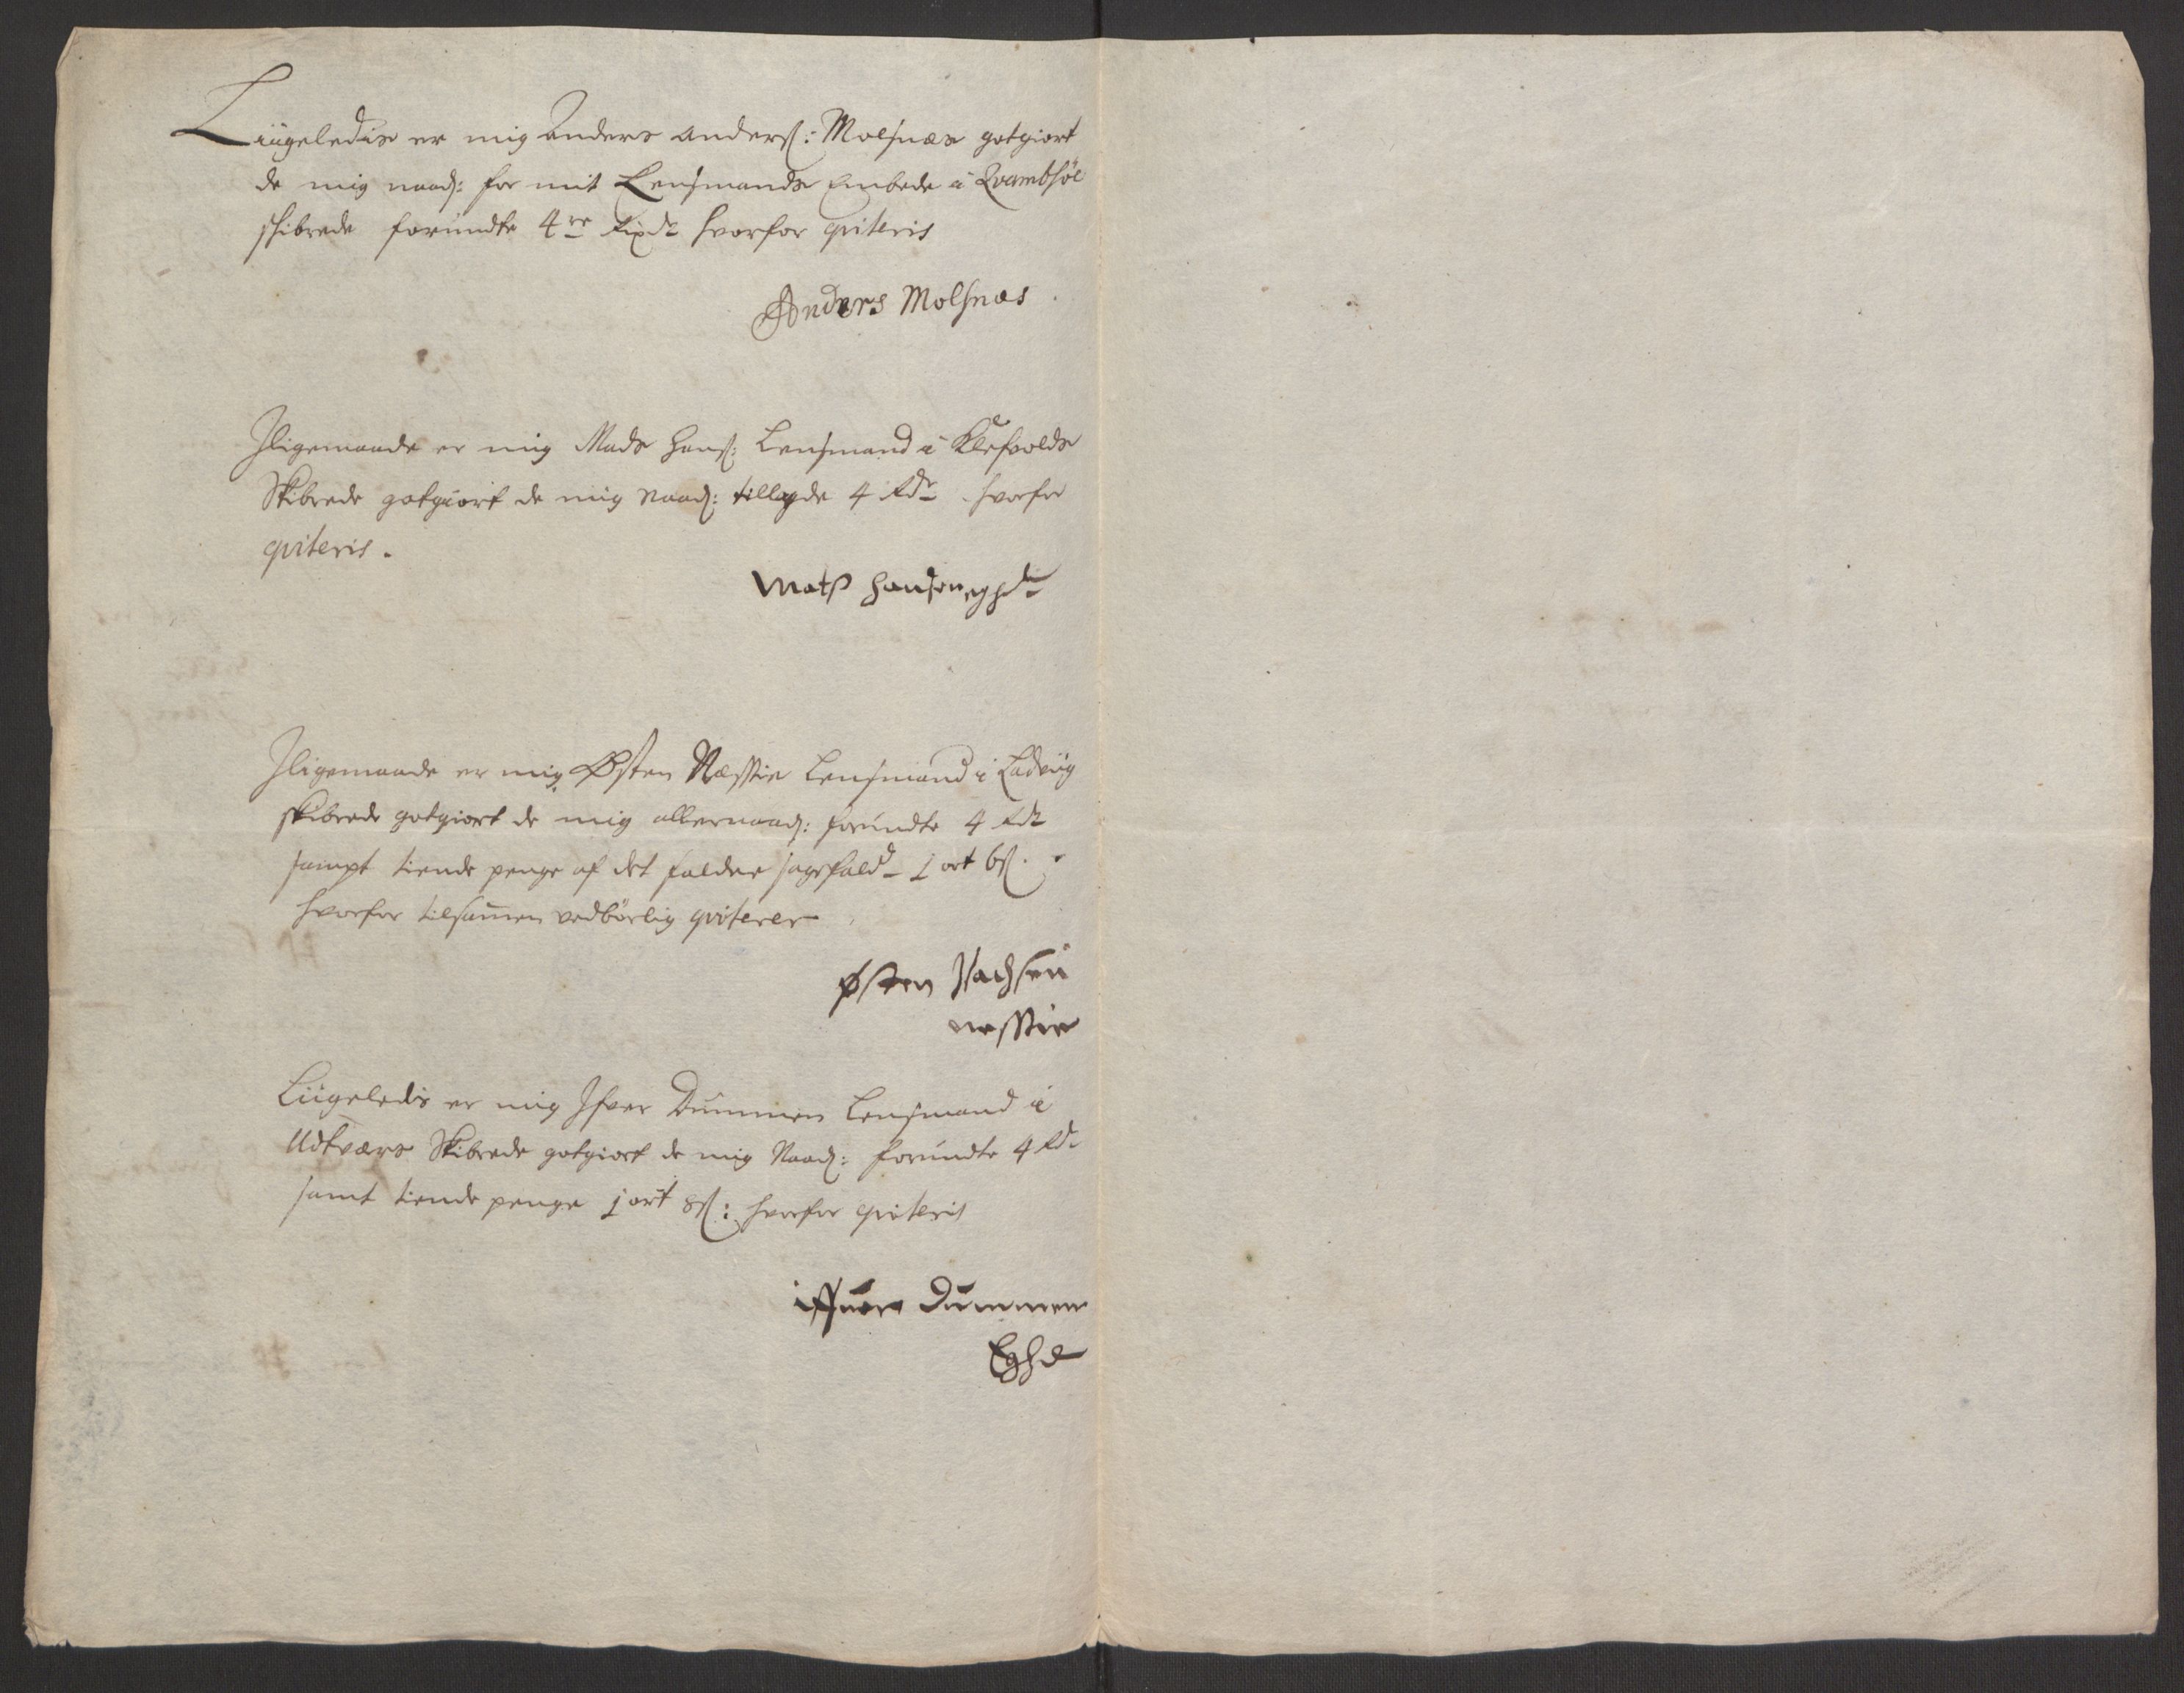 Liigeledis er mig Anders Anderß: Molsnæs gotgiort
de mig naadˢ: for mit Lensmands Embede i Qvambsöe
skibrede forundte 4re Rixdr hvorfor qviteris
Anders Molsnæs
Jligemaade er mig Mads Hanß: Lensmand i Klefvolds
Skibrede gotgiort de mig Naadˢ: tillagde 4 Rdr hvorfor
qviteris.
Matß Hansen eghd
Jligemaade er mig Østen Næssie Lensmand i Ladviig
skibrede gotgiort de mig allernaadˢ: forundte 4 Rdr
sampt tiende penge af det faldne sagefald 1 ort 6ß.
hvorfor tilsamen vedbörlig qviterer
Østen Jsachsen
nessie
Liigeledis er mig Jfver Dummen Lensmand i
Udtværs Skibrede gotgiort de mig Naadˢ: forundte 4 Rdr
samt tiende penge 1 ort 8ß: hvorfor qviteris
iffuer Dummen
Eghd